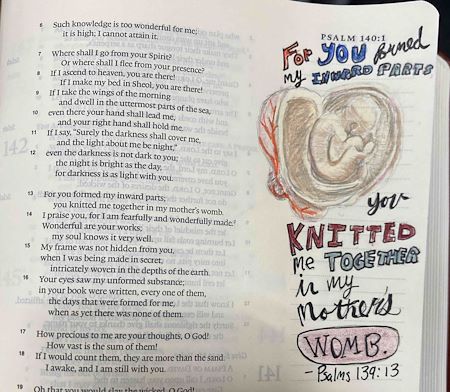 6 Such knowledge is too wonderful for me;
it is high; I cannot attain it.
7 Where shall I go from your Spirit?
Or where shall I flee from your presence?
8 If I ascend to heaven, you are there!
If I make my bed in Sheol, you are there!
9 If I take the wings of the morning
and dwell in the uttermost parts of the sea,
10 even there your hand shall lead me,
and your right hand shall hold me.
11 If I say, "Surely the darkness shall cover me,
and the light about me be night,"
12 even the darkness is not dark to you;
the night is bright as the day,
for darkness is as light with you.
13 For you formed my inward parts;
you knitted me together in my mother's womb.
14 I praise you, for I am fearfully and wonderfully made.
Wonderful are your works;
my soul knows it very well.
15 My frame was not hidden from you,
when I was being made in secret,
intricately woven in the depths of the earth.
16 Your eyes saw my unformed substance;
in your book were written, every one of them,
the days that were formed for me,
when as yet there was none of them.
17 How precious to me are your thoughts, O God!
How vast is the sum of them!
18 If I would count them, they are more than the sand.
I awake, and I am still with you.
19 Oh that you would slay the wicked, O God!
PSALM 140:1
FOR YOU
my INWARD PARTS
you
KNITTED
me TOGETHER
in my
mother's
WOMB.
- Psalms 139:13